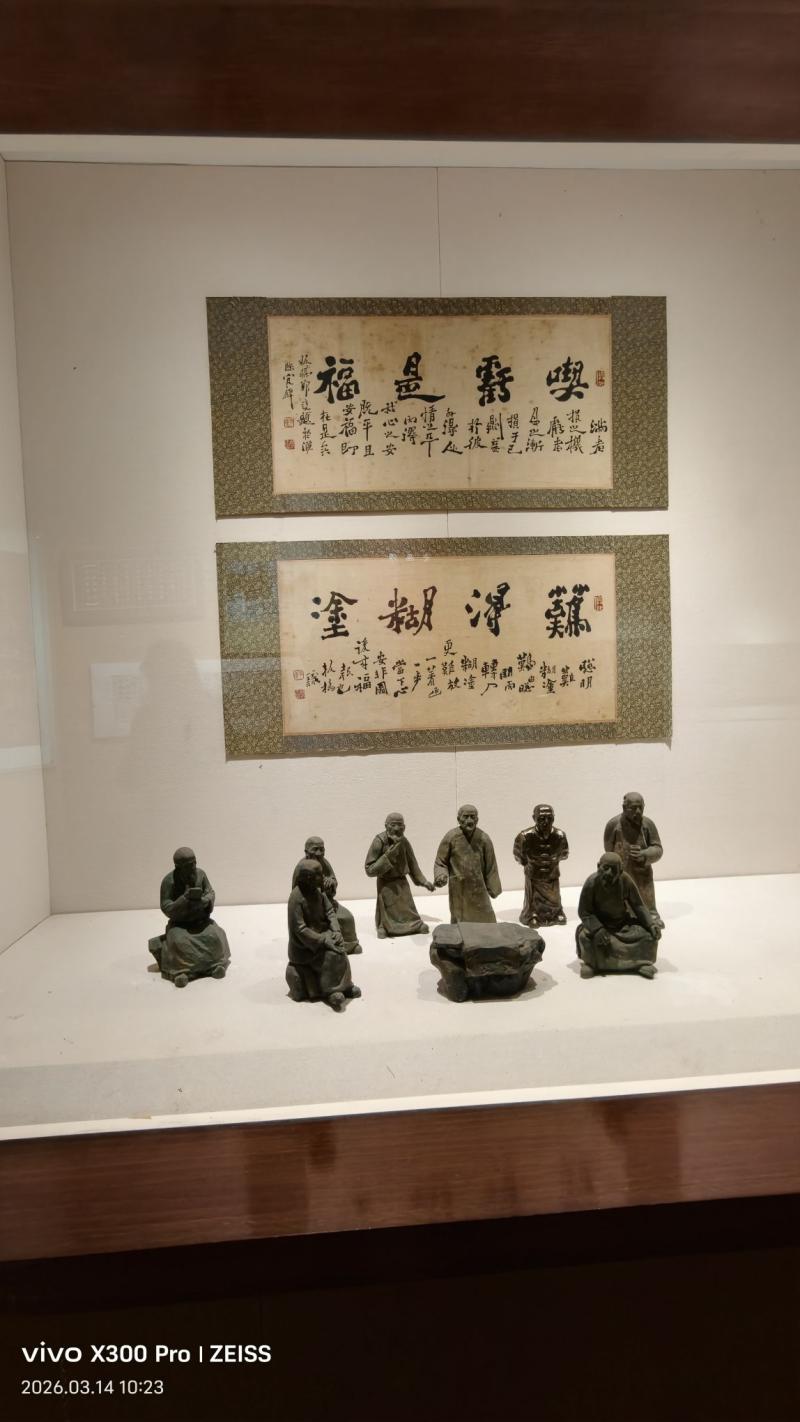 喫虧是福
滿者
損之機
虧者
盈之漸
損于己
則益
於彼
外得人
情之平
內得
我心之安
既平且
安福即
在是矣
板橋鄭燮題於濰
縣官廨
難得糊塗
聰明
難
糊塗
難由聰
明而
轉入
糊塗
更難放
一着退
一步
當下心
安非圖
後來福
報也
板橋
識
vivo X300 Pro | ZEISS
2026.03.14 10:23